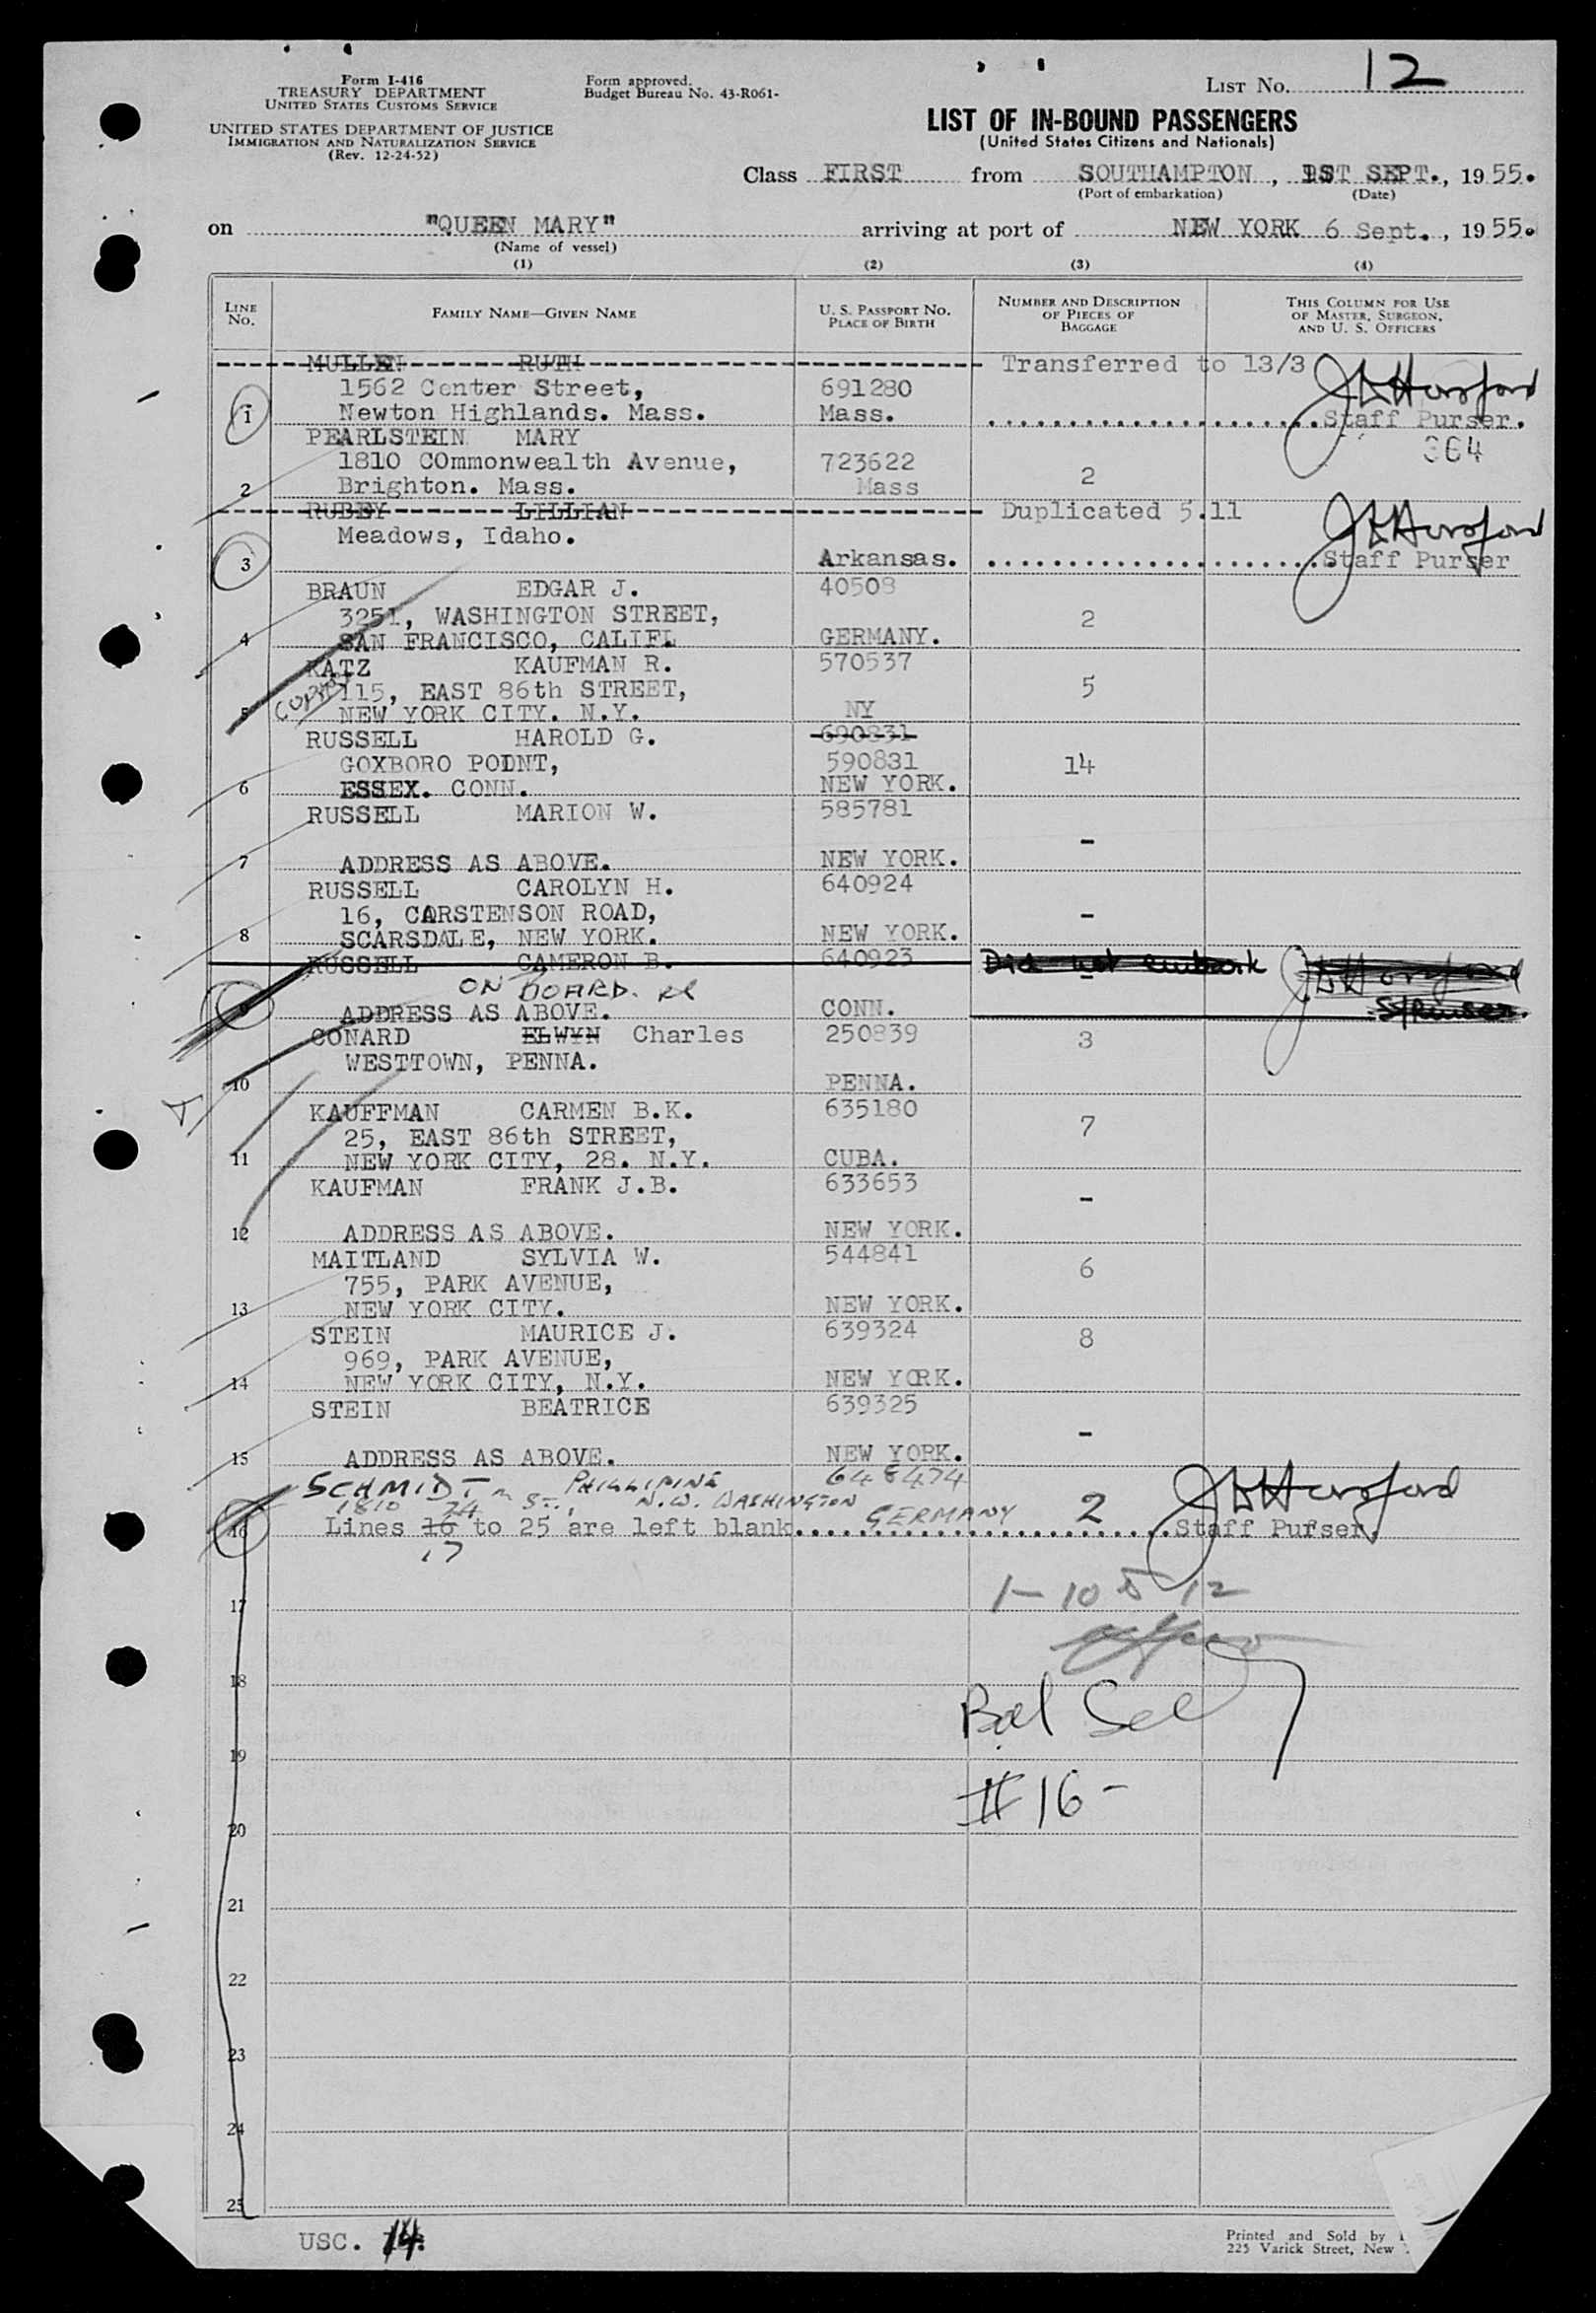 Form I-416
TREASURY DEPARTMENT
UNITED STATES CUSTOMS SERVICE
UNITED STATES DEPARTMENT OF JUSTICE
IMMIGRATION AND NATURALIZATION SERVICE
(Rev. 12-24-52)
Form approved.
Budget Bureau No. 43-R061-
LIST NO. 12
LIST OF IN-BOUND PASSENGERS
(United States Citizens and Nationals)
Class FIRST from SOUTHAMPTON, 1ST SEPT., 1955.
(Port of embarkation) (Date)
on "QUEEN MARY" arriving at port of NEW YORK 6 Sept., 1955.
(Name of vessel)
(1) (2) (3) (4)
LINE NO. FAMILY NAME—GIVEN NAME U. S. PASSPORT NO. PLACE OF BIRTH NUMBER AND DESCRIPTION OF PIECES OF BAGGAGE THIS COLUMN FOR USE OF MASTER, SURGEON, AND U. S. OFFICERS
MULLEN RUTH Transferred to 13/3
1562 Center Street, 691280
1 Newton Highlands. Mass. Mass. Staff Purser.
PEARLSTEIN MARY 364
1810 COmmonwealth Avenue, 723622 2
2 Brighton. Mass. Mass
RUBEY LILLIAN Duplicated 5.11
Meadows, Idaho.
3 Arkansas. Staff Purser
BRAUN EDGAR J. 40508
3251, WASHINGTON STREET, 2
4 SAN FRANCISCO, CALIFL GERMANY.
KATZ KAUFMAN R. 570537
115, EAST 86th STREET, 5
5 NEW YORK CITY. N.Y. NY
RUSSELL HAROLD G. 690831
GOXBORO POINT, 590831 14
6 ESSEX. CONN. NEW YORK.
RUSSELL MARION W. 585781
-
7 ADDRESS AS ABOVE. NEW YORK.
RUSSELL CAROLYN H. 640924
16, CARSTENSON ROAD, -
8 SCARSDALE, NEW YORK. NEW YORK.
RUSSELL CAMERON B. 640923 Did not embark
ON BOARD. -
9 ADDRESS AS ABOVE. CONN.
CONARD ELWYN Charles 250839 3
WESTTOWN, PENNA.
10 PENNA.
KAUFFMAN CARMEN B.K. 635180
25, EAST 86th STREET, 7
11 NEW YORK CITY, 28. N.Y. CUBA.
KAUFMAN FRANK J.B. 633653
-
12 ADDRESS AS ABOVE. NEW YORK.
MAITLAND SYLVIA W. 544841
755, PARK AVENUE, 6
13 NEW YORK CITY. NEW YORK.
STEIN MAURICE J. 639324
969, PARK AVENUE, 8
14 NEW YORK CITY, N.Y. NEW YORK.
STEIN BEATRICE 639325
-
15 ADDRESS AS ABOVE. NEW YORK.
SCHMIDT PHILLIPINE 648474
1810 24 ST., N.W. WASHINGTON
16 Lines 16 to 25 are left blank. GERMANY 2 Staff Purser.
17
17 1-10 & 12
18
Bal See
19
# 16-
20
21
22
23
24
25
USC. 14.
Printed and Sold by
225 Varick Street, New